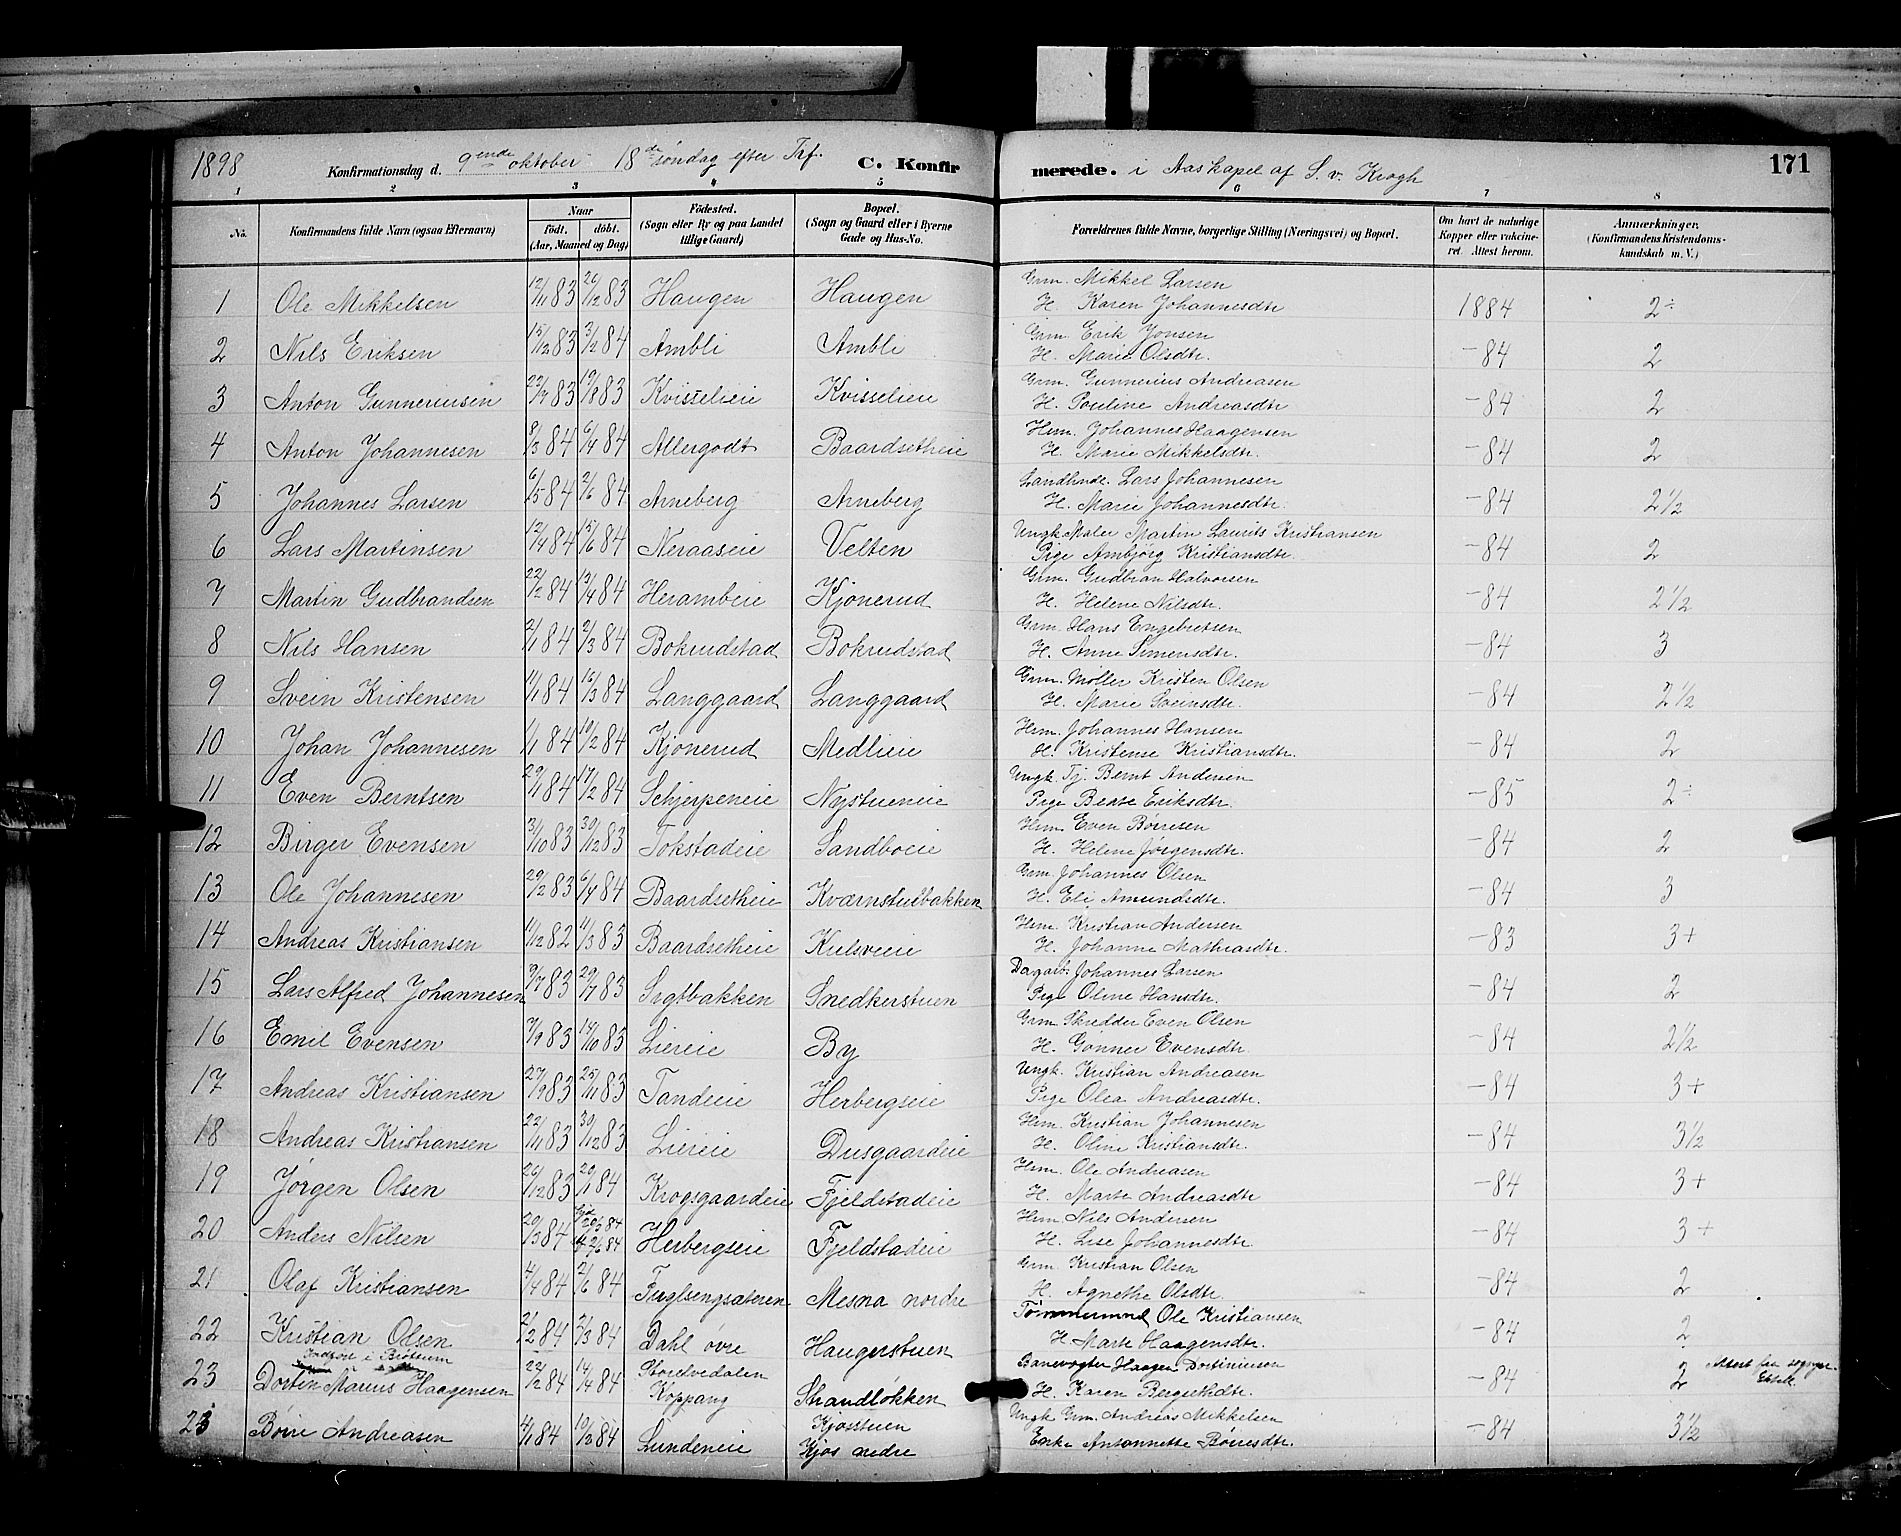 1898 Konfirmationsdag d. 9ende oktober 18de søndag efter Trf. C. Konfirmerede. i Aaskapel af S. v. Krogh 171
1 2 3 4 5 6 7 8
No. Konfirmandens fulde Navn (ogsaa Efternavn) Naar født. døbt. (Aar, Maaned og Dag) Fødested. (Sogn eller By og paa Landet tillige Gaard) Bopæl. (Sogn og Gaard eller i Byerne Gade og Hus-No. Forældrenes fulde Navne, borgerlige Stilling (Næringsvei) og Bopæl. Om havt de naturlige Kopper eller vakcineret. Attest herom. Anmærkninger. (Konfirmandens Kristendomskundskab m. V.)
1 Ole Mikkelsen 12/11 83 26/12 83 Haugen Haugen Grm. Mikkel Larsen
H. Karen Johannesdtr 1884 2÷
2 Nils Eriksen 15/12 83 3/2 84 Ambli Ambli Grm. Erik Jonsen
H. Marie Olsdtr. -84 2
3 Anton Gunneriusen 22/7 83 19/8 83 Kvisselieie Kvisselieie Grm. Gunnerius Andreasen
H. Pouline Andreasdtr -84 2
4 Anton Johannesen 8/3 84 6/4 84 Allergodt Baardsetheie Hrm. Johannes Haagensen
H. Marie Mikkelsdtr. -84 2
5 Johannes Larsen 6/5 84 2/6 84 Arneberg Arneberg Landhndr. Lars Johannesen
H. Marie Johannesdtr. -84 2 1/2
6 Lars Martinsen 12/4 84 15/6 84 Neraaseie Velten Ungk. Maler Martin Laurits Kristiansen
Pige Ambjørg Kristiansdtr. -84 2
7 Martin Gudbrandsen 22/2 84 13/4 84 Herambeie Kjønerud Grm. Gudbran Halvorsen
H. Helene Nilsdtr. -84 2 1/2
8 Nils Hansen 2/1 84 2/3 84 Bokrudstad Bokrudstad Grm. Hans Engebretsen
H. Anne Simensdtr. -84 3
9 Svein Kristensen 11/1 84 16/3 84 Langgaard Langgaard Grm. Møller Kristen Olsen
H. Marie Sveinsdtr. -84 2 1/2
10 Johan Johannesen 1/1 84 10/2 84 Kjønerud Medlieie Hrm. Johannes Hansen
H. Kristense Kristiansdtr. -84 2
11 Even Berntsen 29/1 84 17/2 84 Schjerpeneie Nystueneie Ungk. Tj. Bernt Andersen
Pige Beate Eriksdtr. -85 2÷
12 Birger Evensen 3/10 83 30/12 83 Tokstadeie Sandboeie Hrm. Even Børresen
H. Helene Jørgensdtr. -84 2
13 Ole Johannesen 29/2 83 6/4 84 Baardsetheie Kværnstubakken Grm. Johannes Olsen
H. Eli Amundsdtr. -84 3
14 Andreas Kristiansen 11/12 82 11/3 83 Baardsetheie Kulsveie Hrm. Kristian Andersen
H. Johanne Mathiasdtr. -83 3+
15 Lars Alfred Johannesen 9/7 83 29/7 83 Sigtbakken Snedkerstuen Dagarb. Johannes Larsen
Pige Oline Hansdtr. -84 2
16 Emil Evensen 7/9 83 14/10 83 Liereie By Grm. Skredder Even Olsen
H. Gønner Evensdtr. -84 2 1/2
17 Andreas Kristiansen 27/9 83 25/11 83 Tandeeie Herbergseie Ungk. Kristian Andreasen
Pige Olea Andreasdtr. -84 3+
18 Andreas Kristiansen 22/11 83 30/12 83 Liereie Dusgaardeie Hrm. Kristian Johannesen
H. Oline Kristiansdtr. -84 3 1/2
19 Jørgen Olsen 26/12 83 20/1 84 Krogsgaardeie Fjeldstadeie Hrm. Ole Andreasen
H. Marte Andreasdtr -84 3+
20 Anders Nilsen 20/3 84 20/3 84 2/6 84 Herbergseie Fjeldstadeie Hrm. Nils Andersen
H. Lise Johannesdtr -84 3+
21 Olaf Kristiansen 4/4 84 2/6 84 Fuglsengsæteren Mesna nordre Grm. Kristian Olsen
H. Agnethe Olsdtr. -84 2
22 Kristian Olsen 2/2 84 2/3 84 Dahl øvre Haugerstuen Tømmermnd Ole Kristiansen
H. Marte Haagensdtr. -84 2
23 Dorten Marius Haagensen 22/2 84 14/4 84 Storelvedalen
Koppang Strandløkken Banevogter Haagen Dortiniusen
H. Karen Bergitdtr. -84 2 Attest fra sogpr.
23 Børre Andreasen 4/1 84 10/2 84 Lundeneie Kjosstuen
Kjos nedre Ungk Grm. Andreas Mikkelsen
Enke Antonnette Børresdtr. -84 3 1/2